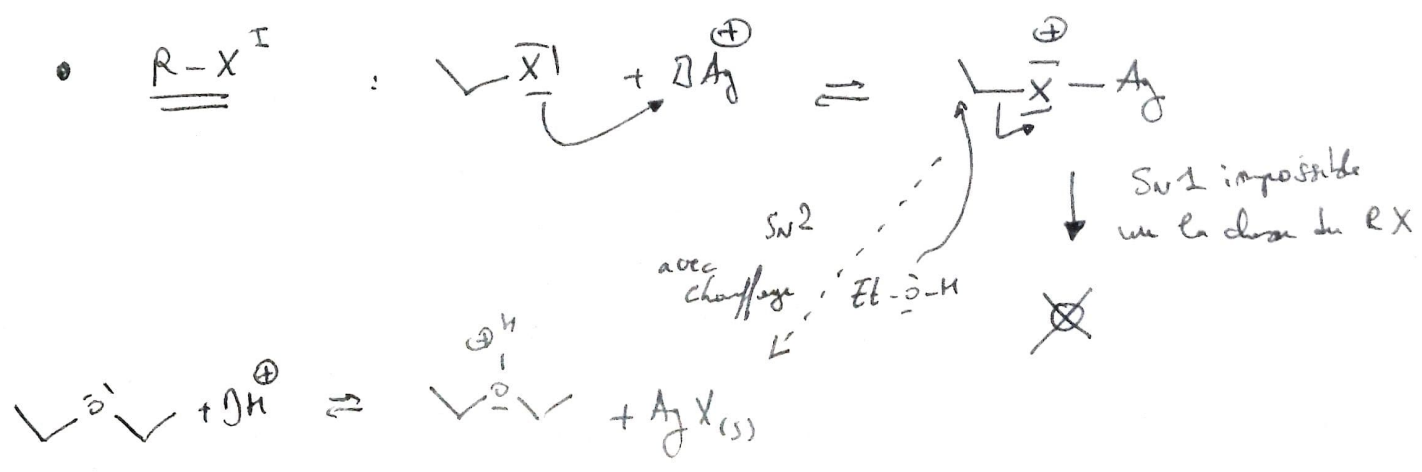 • R–X^I : X + Ag⊕ ⇌ X⊕ – Ag
SN1 impossible
vu la classe du RX
SN2
avec
chauffage
Et–O–H
O + H⊕ ⇌ O⊕ H + AgX(s)